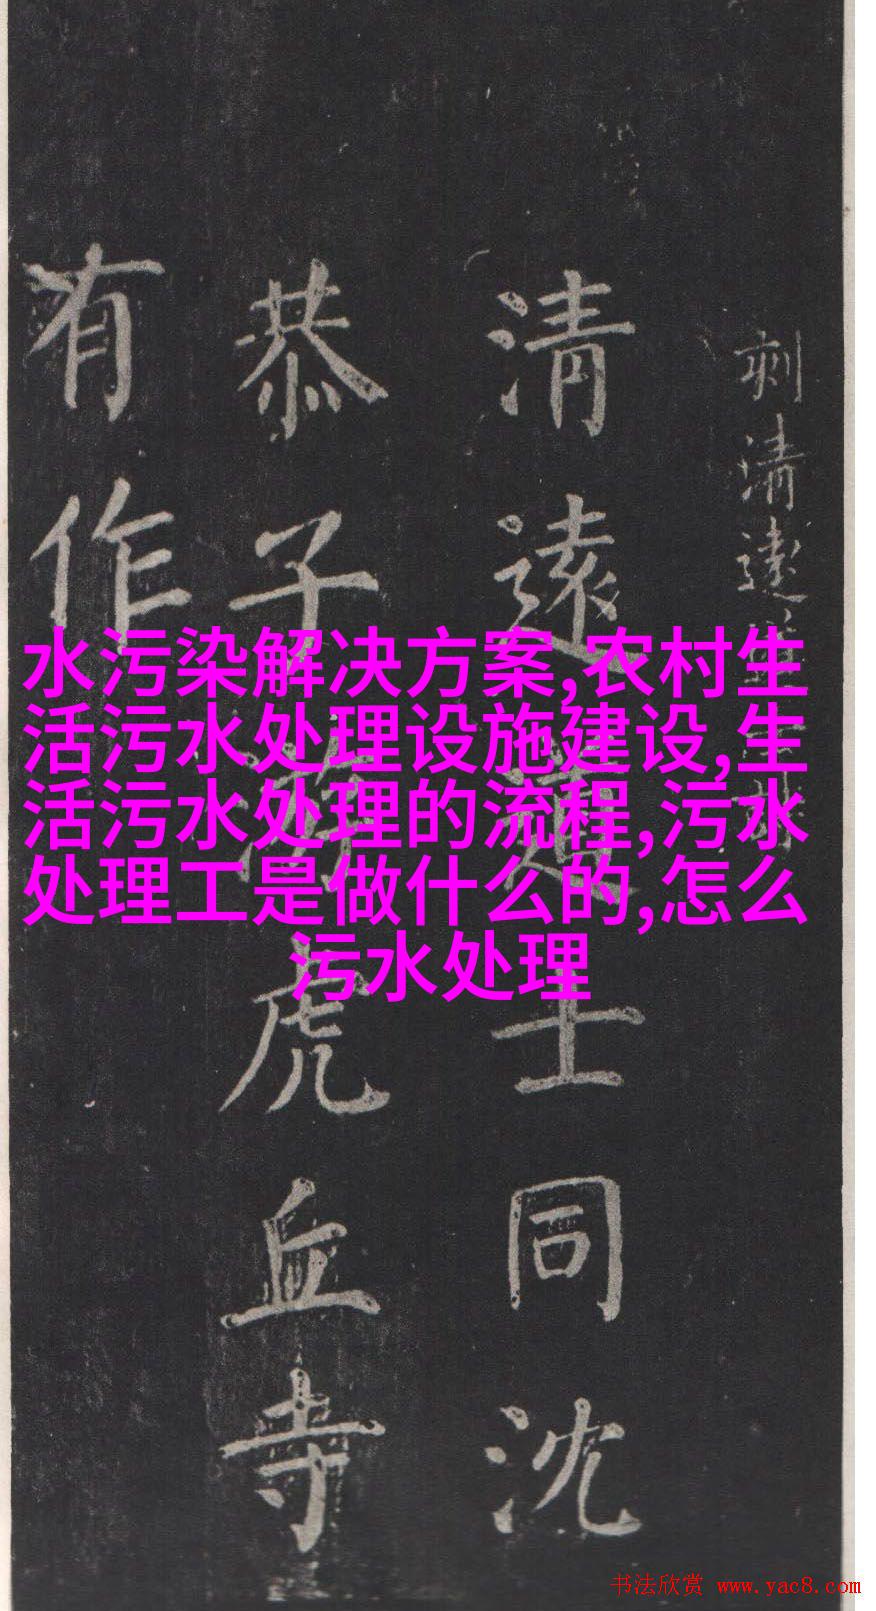 水污染解决方案,农村生
活污水处理设施建设,生
活污水处理的流程,污水
处理工是做什么的,怎么
污水处理
刻清遠道士
清遠道士同沈
恭子游虎丘寺
有作
书法欣赏 www.yac8.com